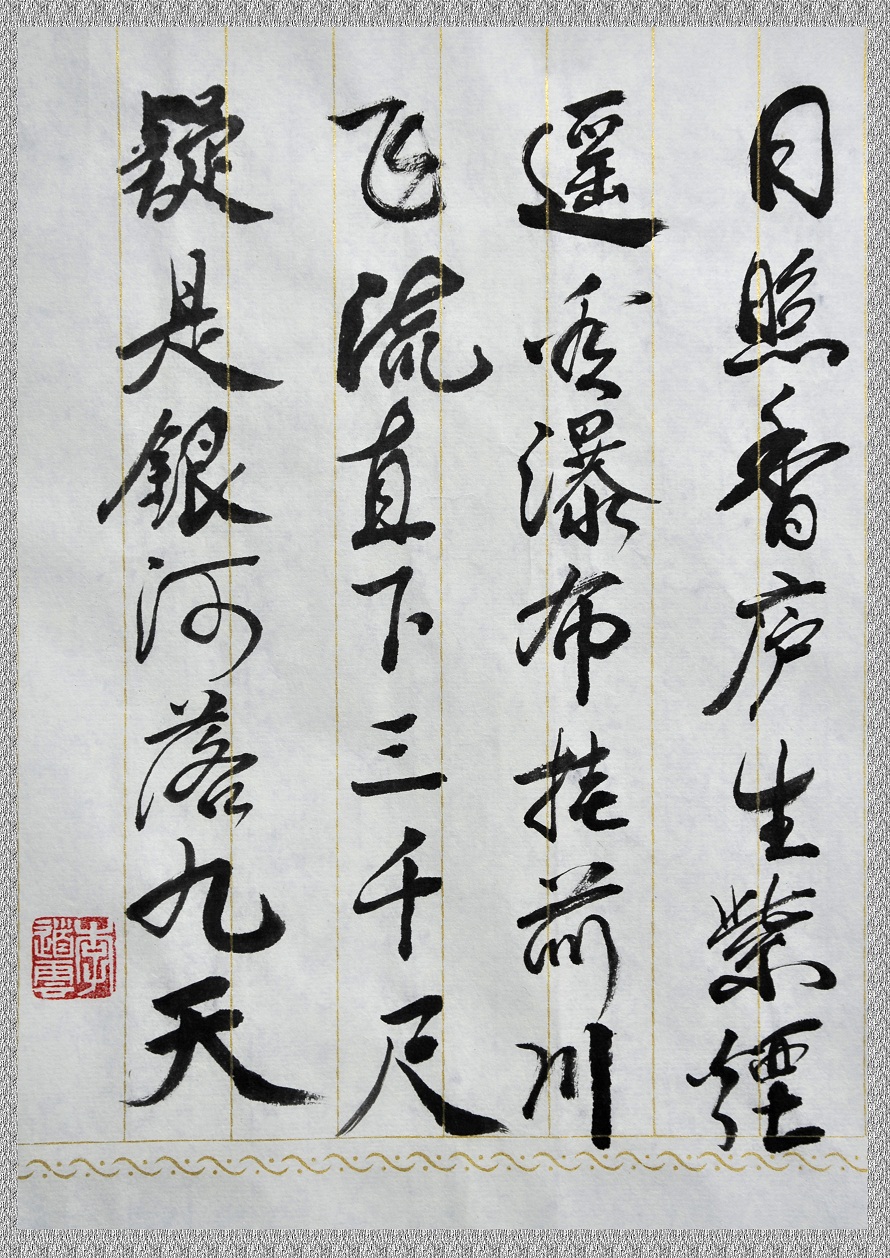 日照香庐生紫煙
遥看瀑布挂前川
飞流直下三千尺
疑是銀河落九天
李道雲